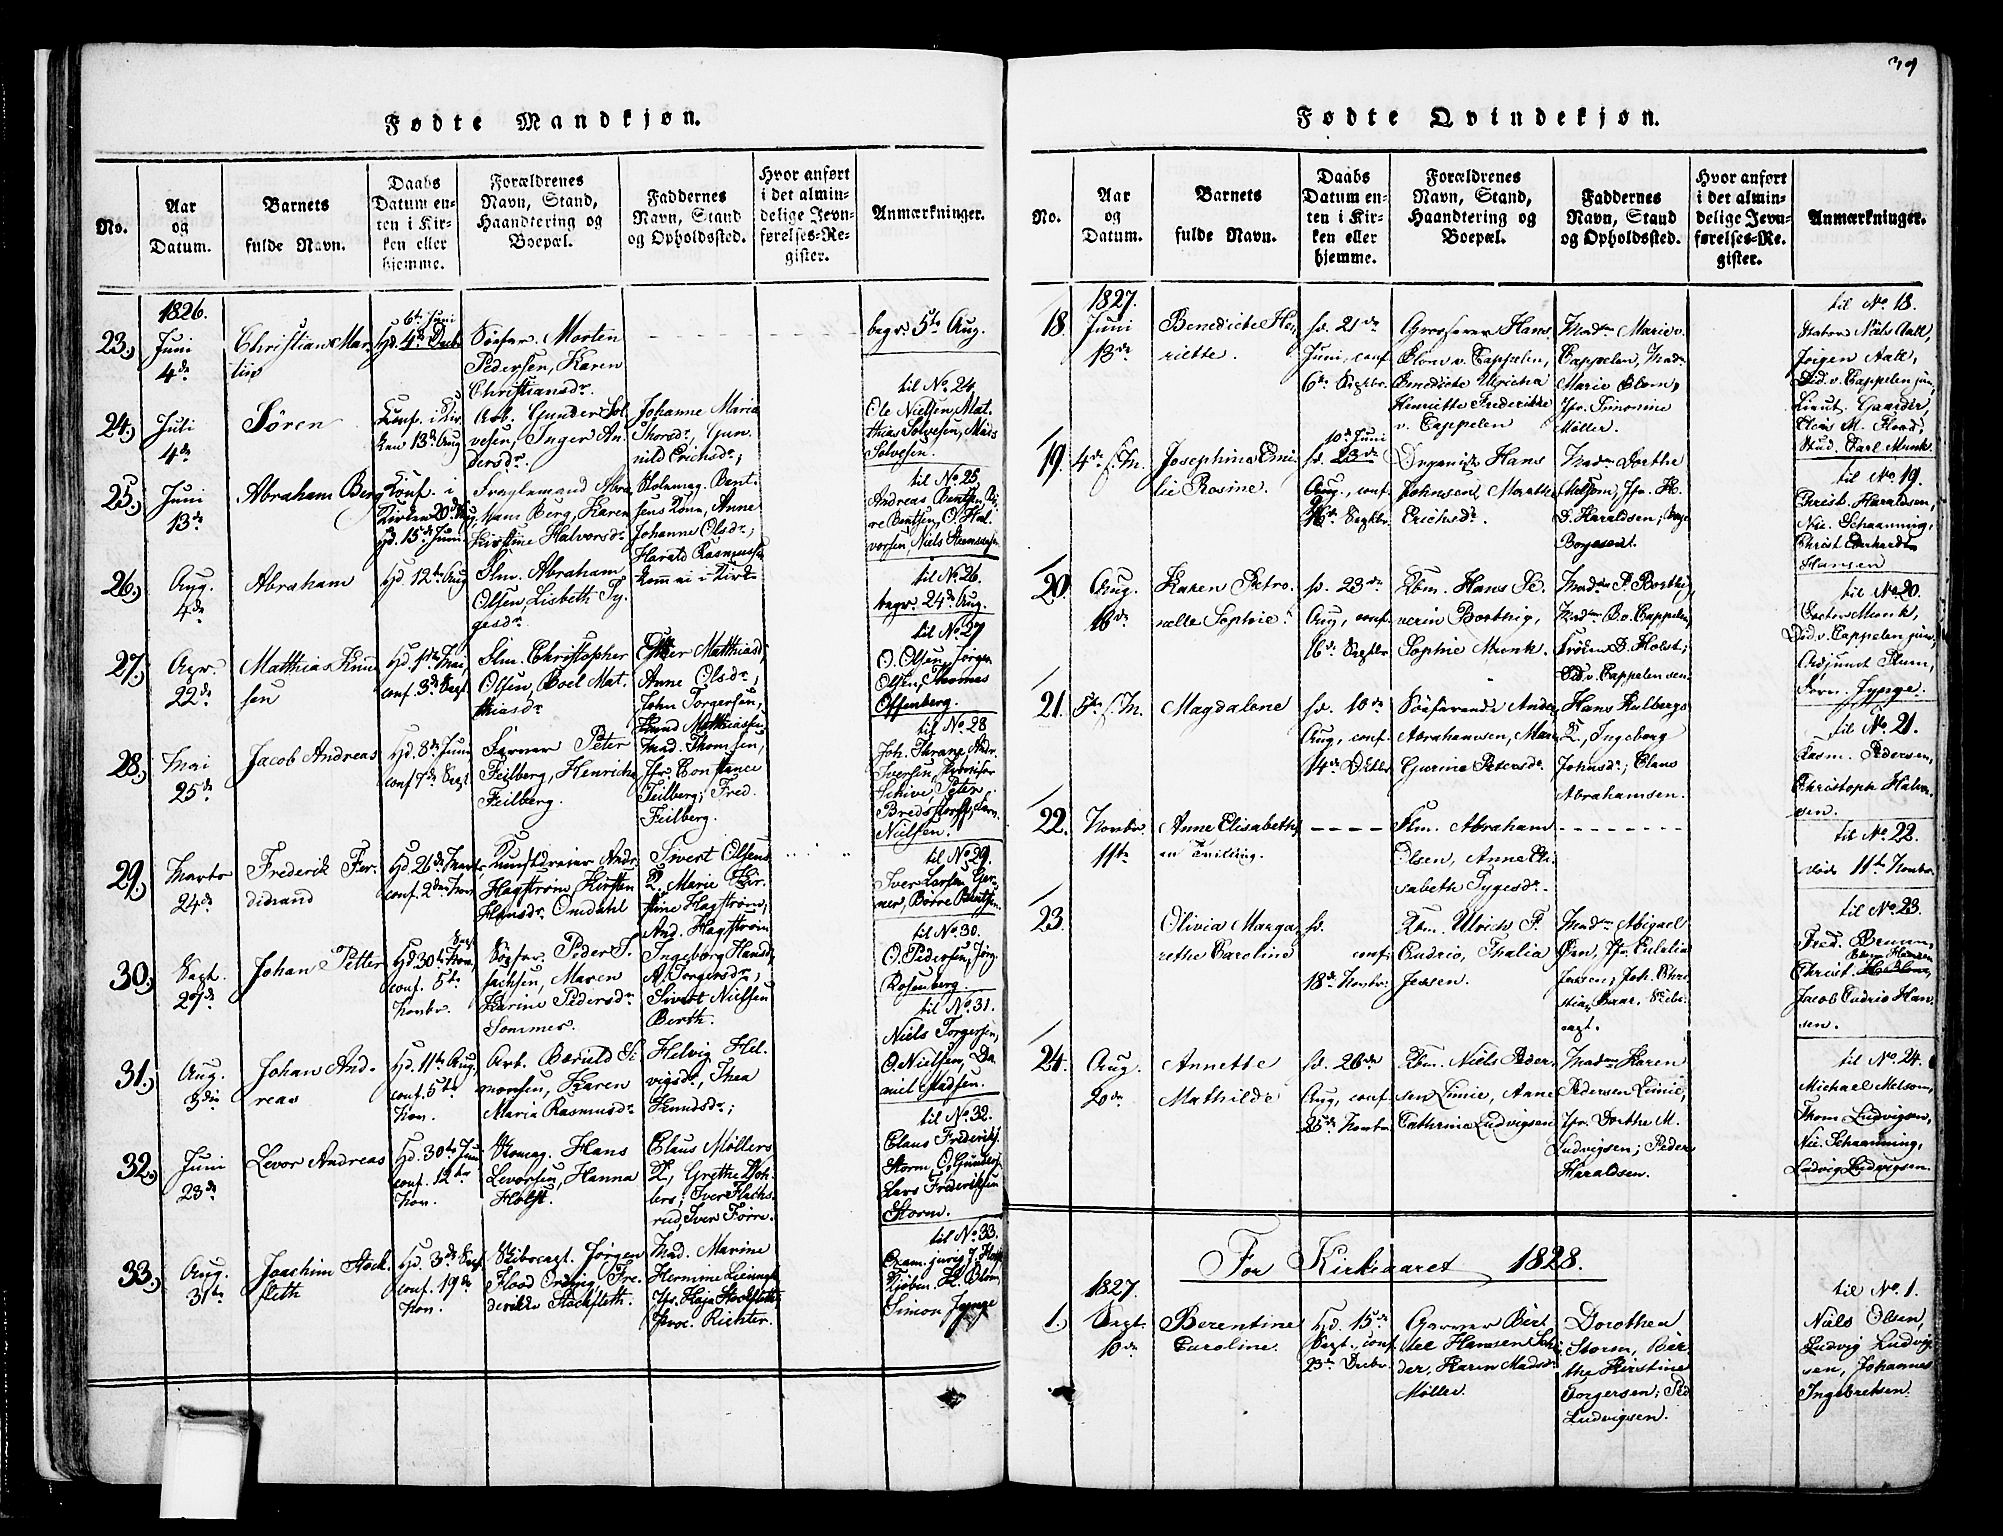 39
Fødte Mandkjøn.
No.
Aar
og
Datum.
Barnets
fulde Navn.
Daabs
Datum en-
ten i Kir-
ken eller
hjemme.
Forældrenes
Navn, Stand,
Haandtering og
Boepæl.
Faddernes
Navn, Stand
og Opholdssted.
Hvor anført
i det almin-
delige Jevn-
førelses-Re-
gister.
Anmærkninger.
1826.
23.)
Juni
4de
Christian Mar-
tin
6te Juni
Hd. 4de Decb
Søefar. Morten
Pedersen, Karen
Christiansdr.
begr. 5te Aug.
24.)
Juli
4de
Søren
Conf. i Kir-
ken 13de Aug
Arb. Gunder Sol-
vesen, Inger An-
dersdr.
Johanne Maria
Thorsdr, Gun-
nild Erichsdr;
til No. 24.
Ole Nielsen, Mat-
thias Solvesen, Mads
Solvesen.
25.)
Juni
13de
Abraham Berg
Conf. i
Kirken 20de Aug
Hd. 15de Juni
Fragtemand Abra-
ham Berg, Karen
Kirstine Halvorsdr
Skomag. Bent-
sens Kone, Anne
Johanne Olsdr;
Harald Rasmussen
kom ei i Kirk-
til No. 25.
Andreas Bentsen, Bør-
re Bentsen, O. Hal-
vorsen, Niels
26.)
Aug.
4de
Abraham
Hd. 12te Aug
Tlm. Abraham
Olsen, Lisbeth Ty-
gesdr
til No. 26.
begr. 24de Aug.
27.)
Apr.
22de
Matthias Knud-
sen
Hd. 1ste Mai,
conf. 3de Sept
Tlm. Christopher
Olsen, Boel Mat-
thiasdr
Matthiasdr,
Anne Olsdr;
John Torgersen,
Knud Matthiasen
til No. 27
O. Olsen, Jørgen
Olsen, Thomas
Offenberg.
28.)
Mai
25de
Jacob Andreas
Hd. 8de Juni
conf 17de Sept
Farver Peter
Feilberg, Henricha
Feilberg.
Mad. Thomsen,
Jfr. Constance
Feilberg; Fred.
Feilberg.
til No. 28
Joh. Thrane, Andr.
Iversen, Provisor
Schive, Peter
Bredstorff, Farv.
Nielsen.
29.)
Marts
24de
Frederik Fer-
didrand
Hd. 26de Marts
conf. 2den Nov.
Kunstdreier Andr.
Hagstrøm, Kirsten
Hansdr. Omdahl
Sivert Olsens
K. Marie Kir-
stine Hagstrøm;
And. Hagstrøm
til No. 29.
Iver Larsen,
ner, Børre Bentsen.
30.)
Sept.
27de
Johan Petter
Sept
Hd. 30te Nov,
conf. 5te
Novbr.
Søefar. Peder I-
sachsen, Maren
Karine Pedersdr
Sommer.
Ingeborg Hansdr,
A. Torgersdr;
Sivert Nielsen
Berth.
til No. 30.
O. Pedersen, Jørg.
Rosenberg.
31.)
Aug.
3die
Johan And-
reas
Hd. 11te Aug.
conf. 5te
Nov.
Arb. Bæruld Si-
monsen, Karen
Maria Rasmusdr
Helvig Hel-
vigsdr, Thea
Knudsdr;
til No. 31.
Niels Torgersen,
O. Nielsen, Da-
niel Madsen.
32.)
Juni
23de
Levor Andreas
Hd. 30te Juni
conf. 12te
Nov.
Skomag. Hans
Levorsen, Hanna
Holst.
Claus Møllers
K., Grethe Døh-
lers; Iver Flachs-
rud, Iver Førre.
til No. 32.
Claus Frederiks.
Storm, O. Gunders.
Lars Frederiksen
Storm.
33.)
Aug.
31te
Joachim Stock-
fleth
Hd. 3de Sept
conf. 19de
Nov.
Skibscapt. Jørgen
Flood Ording, Fre-
derikke Stockfleth.
Mad. Marine
Hermine
Jfr. Kaja Stockfleth;
Proc. Richter.
til No. 33.
Exam. juris J.
Kjøbm. H. Blom,
Simon Jynge
Fødte Qvindekjøn.
No.
Aar
og
Datum.
Barnets
fulde Navn.
Daabs
Datum en-
ten i Kir-
ken eller
hjemme.
Forældrenes
Navn, Stand,
Haandtering og
Boepæl.
Faddernes
Navn, Stand
og Opholdssted.
Hvor anført
i det almin-
delige Jevn-
førelses-Re-
gister.
Anmærkninger.
1827.
18.
Juni
13de
Benedicte Hen-
riette.
hd. 21de
Juni, conf
6te Septbr.
Grosserer Hans
Blom v. Cappelen,
Benedicte Ulricha
Henriette Frederikke
v. Cappelen
Madm Marie v.
Cappelen, Madm
Marie Blom,
Jfr. Simonine
Møller.
til No 18.
Niels Aall,
Jørgen Aall,
Did. v. Cappelen jun,
Lieut.
M. Flood,
Stud. Carl Munk.
19.
4de f. M.
Josephine Emi-
lie Rosine.
10de Juni
hd. 23de
Aug., conf
16de Septbr.
Organist Hans
Johnsen, Marthe
Erichsdr.
Madm Dorthe
Melsom, Jfr. H.
D. Haraldsen;
Borgesent.
til No 19.
Christ. Haraldsen,
Nic. Schaanning,
Christ.
Hansen
20.
Aug.
18de
Karen Petro-
nelle Sophie.
hd. 23de
Aug, conf
16de Septbr
Kbm. Hans Se-
verin Borthig,
Sophie Munk.
Madm P. Borthig
Madm B. v. Cappelen
Frøken D. Holst;
Did. v. Cappelen sen.
til No 20.
Doctor Munk,
Did. v. Cappelen jun,
Adjunct Flum,
Jynge.
21.
5te f. M.
Magdalene
hd. 10de
Aug, conf
14de Octbr
Søefarende Andr.
Abrahamsen, Mari
Gurine Petersdr
Hans Kulbergs
K., Ingeborg
Johnsdr; Claus
Abrahamsen.
til No. 21.
Rasm. Pedersen,
Christoph. Halvor-
sen.
22.
Novbr.
11te
Anne Elisabeth,
en Tvilling.
Tlm. Abraham
Olsen, Anne Eli-
sabeth Tygesdr.
til No 22.
død 11te Novbr.
23.
Olivia Marga-
rethe Caroline
hd.
conf
18de Novbr.
Kbm. Ulrich F.
Cudrio, Thalia
Jessen.
Madm Abigael
Øren, Jfr. Eulalia
Joh. Chri-
stian Baar, Skibs-
capt.
til No. 23.
Fred.
Christ.
Jacob Cudrio Han-
sen.
24.
Aug.
20de
Annette
Mathilde
hd. 26de
Aug, conf
25de Novbr
Kbm. Niels Peder-
sen Linie, Anne
Cathrina Ludvigsen
Madm Karen
Pedersen Linie,
Jfr. Dorthe M.
Ludvigsen; Peder
Haraldsen.
til No. 24.
Michael Melsom,
Thom. Ludvigsen,
Nic. Schaanning,
Ludvig Ludvigsen.
For Kirkeaaret 1828.
1827.
1.
Sept.
10de
Berentine
Caroline.
Hd. 15de
Sept., conf
23de Decbr.
Garver Bert-
tel Hansen
der, Karen Madsdr
Møller.
Dorothea
Storm, Bær-
the Kirstine
Torgersen; Ped.
Ludvigsen.
til No. 1.
Niels Olsen,
Ludvig Ludvig-
sen, Johannes
Ingebretsen.